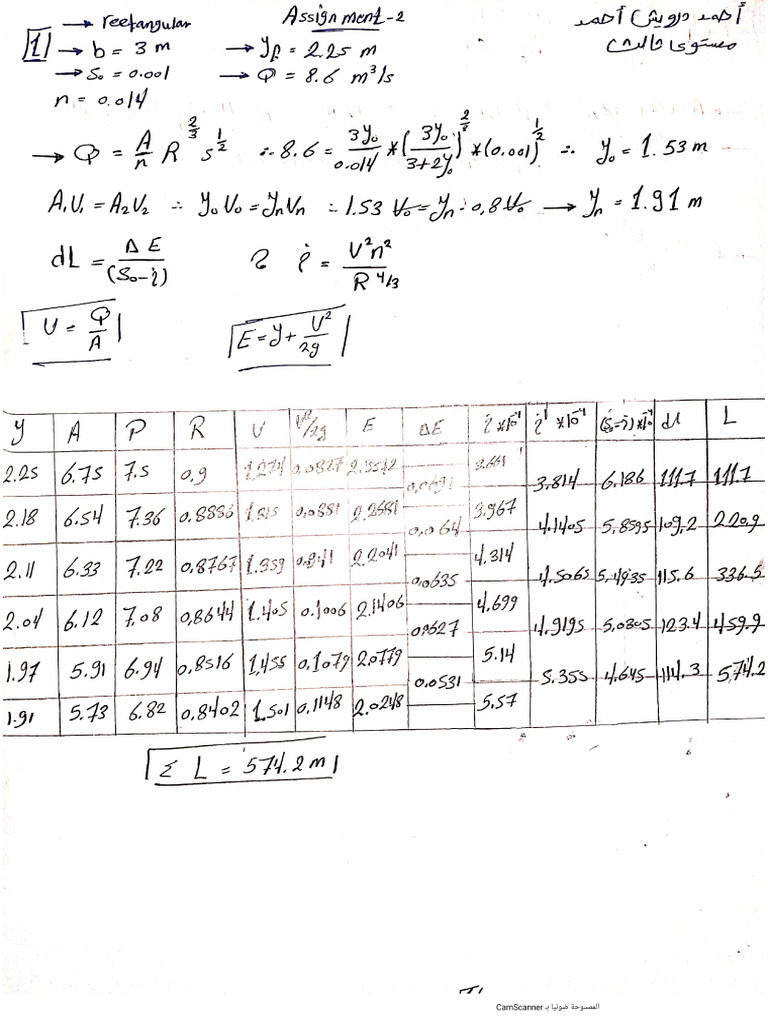 Assignment-2
أحمد درويش أحمد
مستوى ثالث
1 → rectangular
→ b = 3 m → yp = 2.25 m
→ So = 0.001 → Q = 8.6 m³/s
n = 0.014
→ Q = A/n R^2/3 S^1/2 ∴ 8.6 = 3yo/0.014 * (3yo/3+2yo)^2/3 * (0.001)^1/2 ∴ yo = 1.53 m
A1V1 = A2V2 ∴ yoVo = ynVn ∴ 1.53 Vo = yn · 0,8 Vo → yn = 1.91 m
dL = ΔE/(So-i) i = V²n²/R^4/3
V = Q/A E = y + V²/2g
y A P R V V²/2g E ΔE i *10⁻⁴ i' *10⁻⁴ (So-i)*10⁻⁴ dl L
2.25 6.75 7.5 0.9 1.274 0.0827 2.3 3.661
0.0691 3.814 6.186 111.7 111.7
2.18 6.54 7.36 0.8886 1.315 0.0881 2.2681 3.967
0.064 4.1405 5.8595 109.2 220.9
2.11 6.33 7.22 0.8767 1.359 2.2041 4.314
0.0635 4.5065 5.4935 115.6 336.5
2.04 6.12 7.08 0,8644 1.405 0.1006 2.1406 4.699
0.0627 4.9195 5.0805 123.4 459.9
1.97 5.91 6.94 0.8516 1,455 0.1079 2.0779 5.14
0.0531 5.355 4.645 114.3 574.2
1.91 5.73 6.82 0.8402 1.501 0.1148 2.0248 5.57
Σ L = 574.2 m
الممسوحة ضوئيا بـ CamScanner